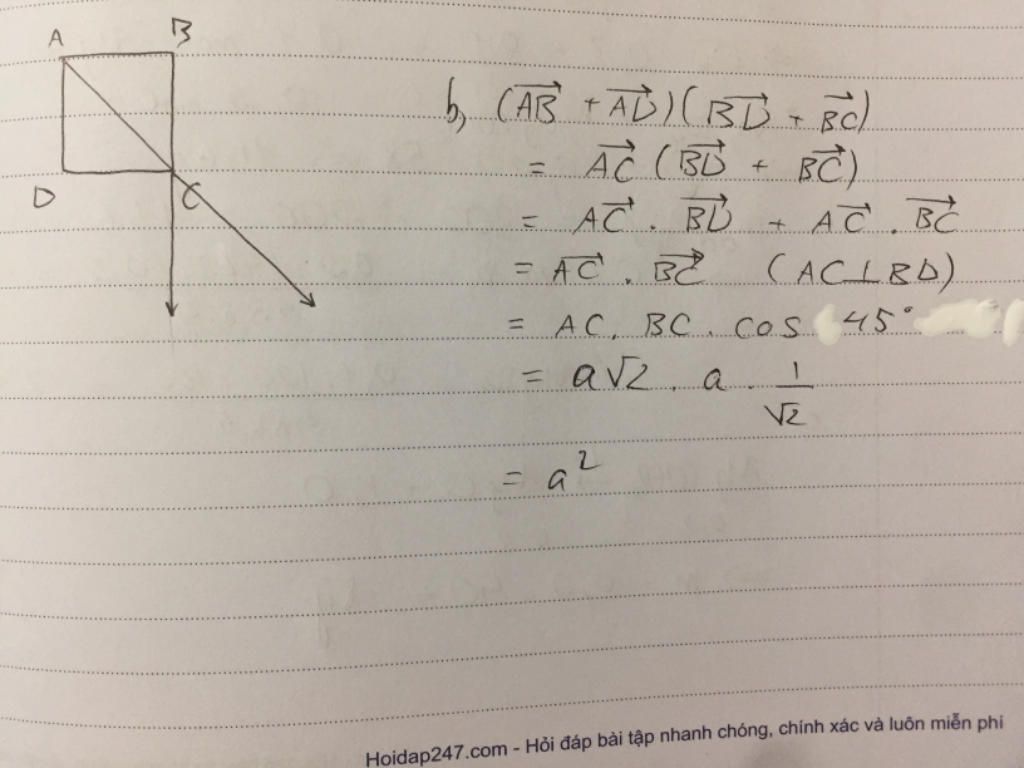 A B
D C
b, (\overrightarrow{AB} + \overrightarrow{AD})(\overrightarrow{BD} + \overrightarrow{BC})
= \overrightarrow{AC} (\overrightarrow{BD} + \overrightarrow{BC})
= \overrightarrow{AC} . \overrightarrow{BD} + \overrightarrow{AC} . \overrightarrow{BC}
= \overrightarrow{AC} . \overrightarrow{BC} (AC⊥BD)
= AC. BC. cos 45°
= a√2 . a . 1/√2
= a²
Hoidap247.com - Hỏi đáp bài tập nhanh chóng, chính xác và luôn miễn phí